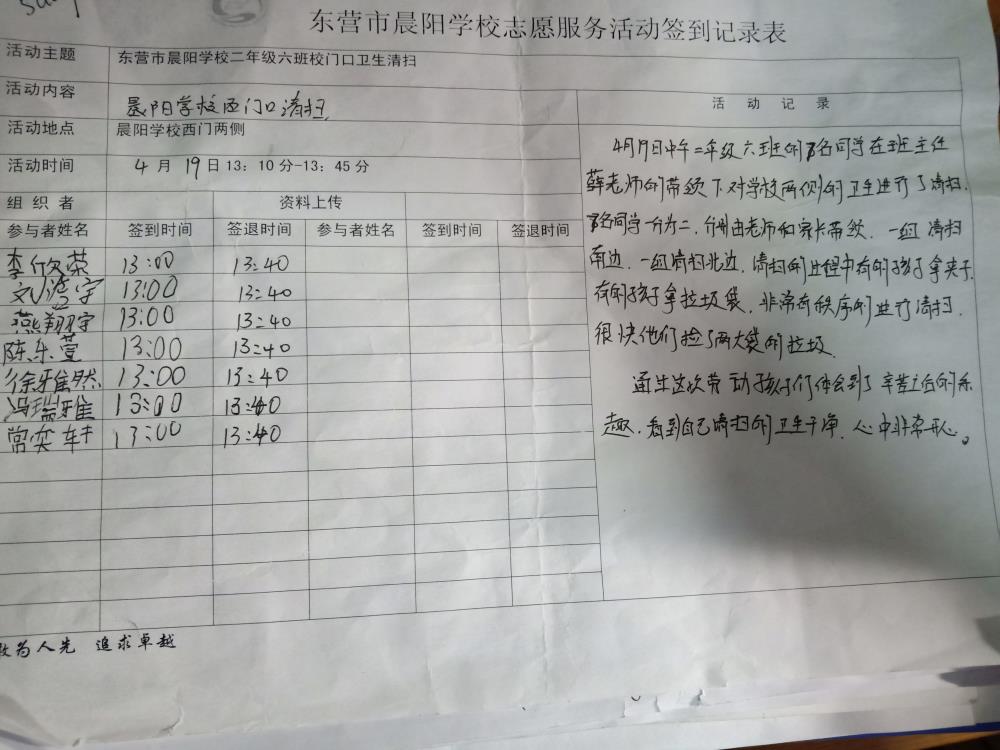 东营市晨阳学校志愿服务活动签到记录表
活动主题 东营市晨阳学校二年级六班校门口卫生清扫
活动内容 晨阳学校西门口清扫.
活动地点 晨阳学校西门两侧
活动时间 4 月 19 日 13：10 分-13：45 分
组织者 资料上传
参与者姓名 签到时间 签退时间 参与者姓名 签到时间 签退时间
李欣荣 13:00 13:40
刘浩宇 13:00 13:40
燕翔宇 13:00 13:40
陈乐萱 13:00 13:40
徐雅然 13:00 13:40
冯瑞雅 13:00 13:40
常奕轩 13:00 13:40
活动记录
4月19日中午二年级六班的8名同学在班主任
薛老师的带领下对学校两侧的卫生进行了清扫.
8名同学一分为二，分别由老师和家长带领.一组清扫
南边.一组清扫北边.清扫的过程中有的孩子拿夹子.
有的孩子拿垃圾袋.非常有秩序的进行清扫.
很快他们捡了两大袋的垃圾.
通过这次劳动孩子们体会到了辛苦过后的乐
趣.看到自己清扫的卫生干净.心中非常开心。
敢为人先 追求卓越